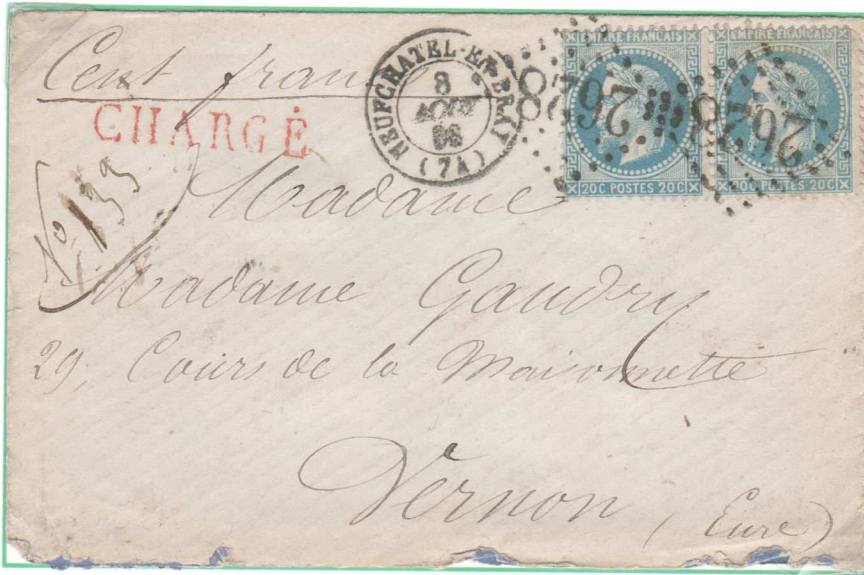 Cent francs
CHARGÉ
NEUFCHATEL-EN-BRAY
8
AOUT
(74)
EMPIRE FRANÇAIS
20C POSTES 20C
2628
EMPIRE FRANÇAIS
20C POSTES 20C
2628
No 133
Madame
Madame Gaudry
29, Cours de la Maisonnette
Vernon (Eure)